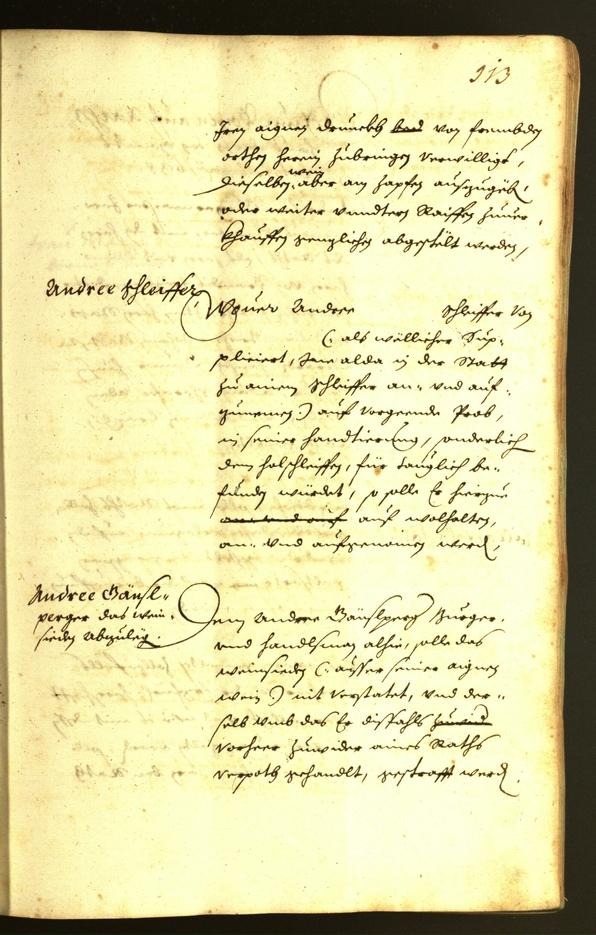 913
Iren aignen drunckh von frembden
orthen herein zubringen verwilligt,
wein
dieselben aber am zapfen auszugeben,
oder weiter vnndtern Raiffen zuuer-
khauffen genzlichen abgestölt werden,
Andree schleiffer
Wouer Andree schleiffer von
(: als wöllicher Sup-
pliciert, Ine alda in der Statt
zu ainem schleiffer an- vnd auf-
zunemen :) auf vorgeende Prob,
in seiner handtierung, sonderlich
dem holschleiffen, für tauglich be-
funden würdet, so solle Er hierzue
an vnd auf auf wolhalten,
an- vnd aufgenomen werden,
Andree Gänsl-
perger das wein-
sieden abzulegen.
Dem Andree Gänslperger Burger
vnd handlsman alhie, solle das
weinsieden (: ausser seiner aignen
wein :) nit verstatet, vnd der-
selb vmb das Er disfahls
vorheer zuwider aines Raths
verpoth gehandlt, gestrafft werden.